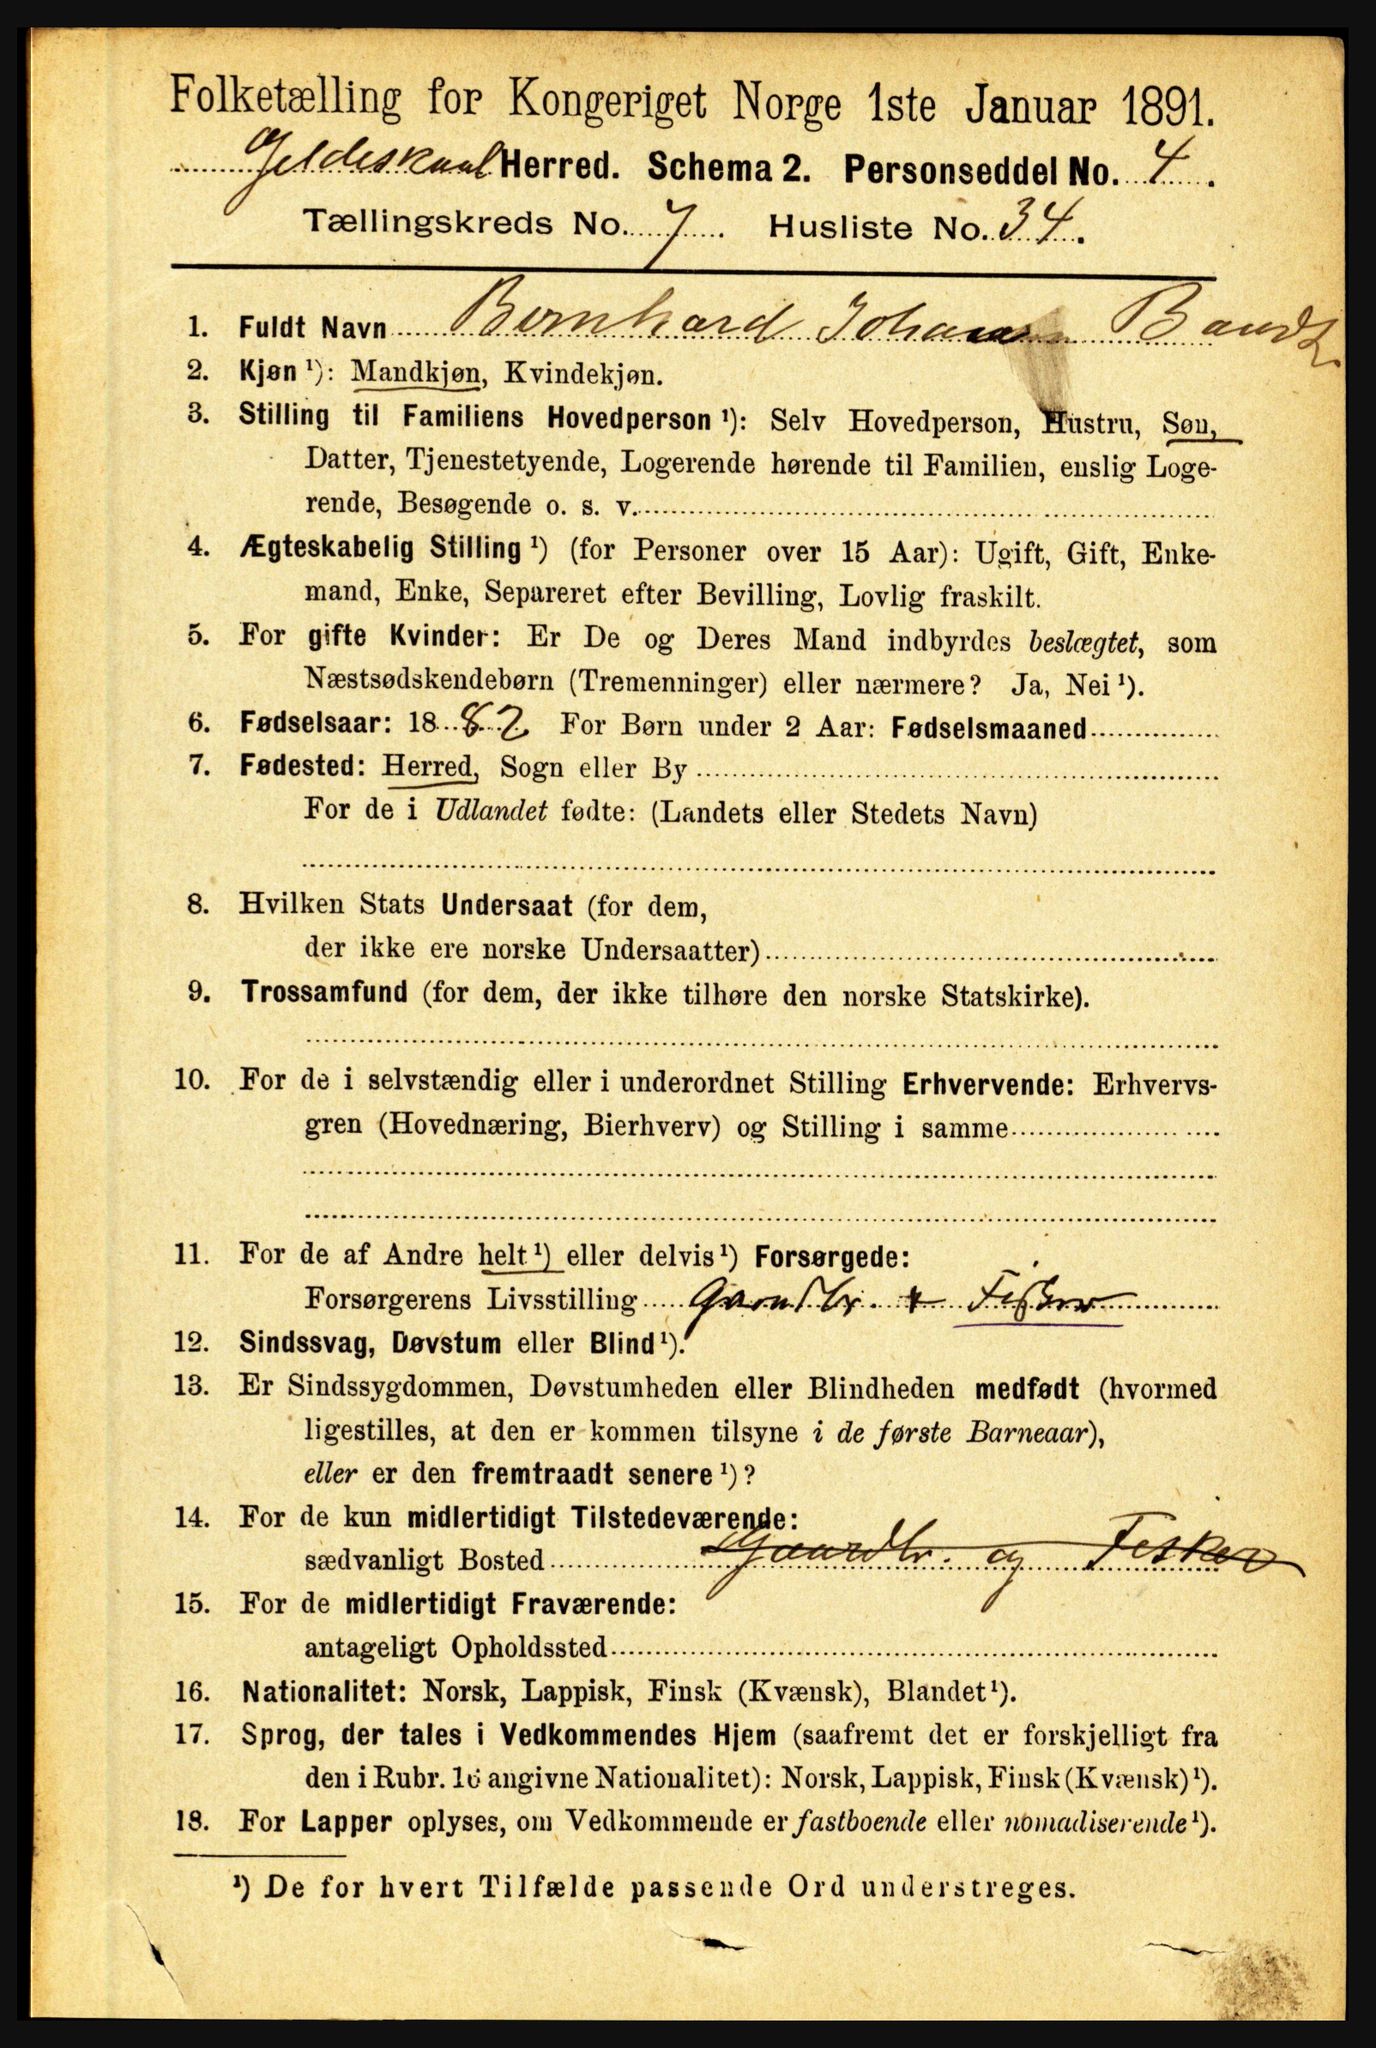 Folketælling for Kongeriget Norge 1ste Januar 1891.
Gildeskaal Herred. Schema 2. Personseddel No. 4.
Tællingskreds No. 7. Husliste No. 34.
1. Fuldt Navn Bernhard Johan
2. Kjøn ¹): Mandkjøn, Kvindekjøn.
3. Stilling til Familiens Hovedperson ¹): Selv Hovedperson, Hustru, Søn,
Datter, Tjenestetyende, Logerende hørende til Familien, enslig Loge-
rende, Besøgende o. s. v.
4. Ægteskabelig Stilling ¹) (for Personer over 15 Aar): Ugift, Gift, Enke-
mand, Enke, Separeret efter Bevilling, Lovlig fraskilt.
5. For gifte Kvinder: Er De og Deres Mand indbyrdes beslægtet, som
Næstsødskendebørn (Tremenninger) eller nærmere? Ja, Nei ¹).
6. Fødselsaar: 1882 For Børn under 2 Aar: Fødselsmaaned
7. Fødested: Herred, Sogn eller By
For de i Udlandet fødte: (Landets eller Stedets Navn)
8. Hvilken Stats Undersaat (for dem,
der ikke ere norske Undersaatter)
9. Trossamfund (for dem, der ikke tilhøre den norske Statskirke).
10. For de i selvstændig eller i underordnet Stilling Erhvervende: Erhvervs-
gren (Hovednæring, Bierhverv) og Stilling i samme
11. For de af Andre helt ¹) eller delvis ¹) Forsørgede:
Forsørgerens Livsstilling Gaardbr. + Fisker
12. Sindssvag, Døvstum eller Blind ¹).
13. Er Sindssygdommen, Døvstumheden eller Blindheden medfødt (hvormed
ligestilles, at den er kommen tilsyne i de første Barneaar),
eller er den fremtraadt senere ¹)?
14. For de kun midlertidigt Tilstedeværende:
sædvanligt Bosted Gaardbr. og Fisker
15. For de midlertidigt Fraværende:
antageligt Opholdssted
16. Nationalitet: Norsk, Lappisk, Finsk (Kvænsk), Blandet ¹).
17. Sprog, der tales i Vedkommendes Hjem (saafremt det er forskjelligt fra
den i Rubr. 16 angivne Nationalitet): Norsk, Lappisk, Finsk (Kvænsk) ¹).
18. For Lapper oplyses, om Vedkommende er fastboende eller nomadiserende ¹).
¹) De for hvert Tilfælde passende Ord understreges.